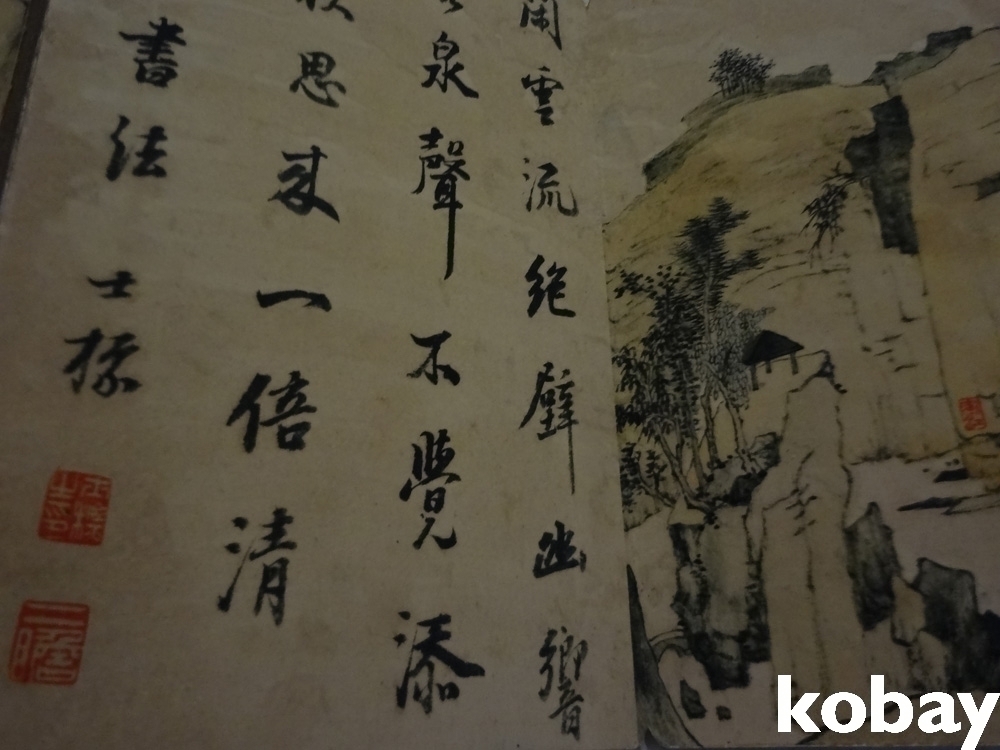 雲流絶壁幽響
泉聲不覺添
思来一倍清
書法
士標
二瞻
kobay